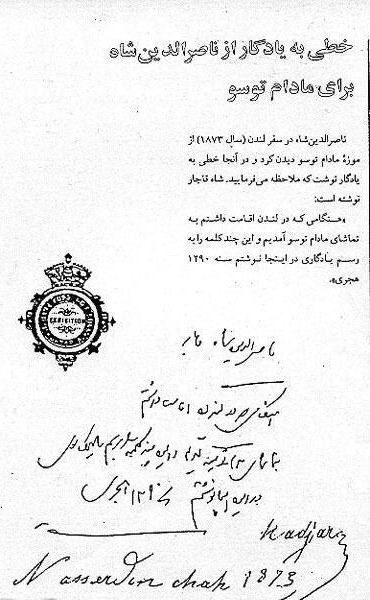 خطی به یادگار از ناصرالدین شاه
برای مادام توسو
ناصرالدین‌شاه در سفر لندن (سال ۱۸۷۳) از
موزهٔ مادام توسو دیدن کرد و در آنجا خطی به
یادگار نوشت که ملاحظه می‌فرمایید. شاه قاجار
نوشته است:
«هنگامی که در لندن اقامت داشتم به
تماشای مادام توسو آمدیم و این چند کلمه را به
رسم یادگاری در اینجا نوشتم سنه ۱۲۹۰
هجری».
EXHIBITION
ناصرالدین شاه
در لندن اقامت داشتم
این چند کلمه را
نوشتم ۱۲۹۰ هجری
Kadjar
Nasserdin chah 1873